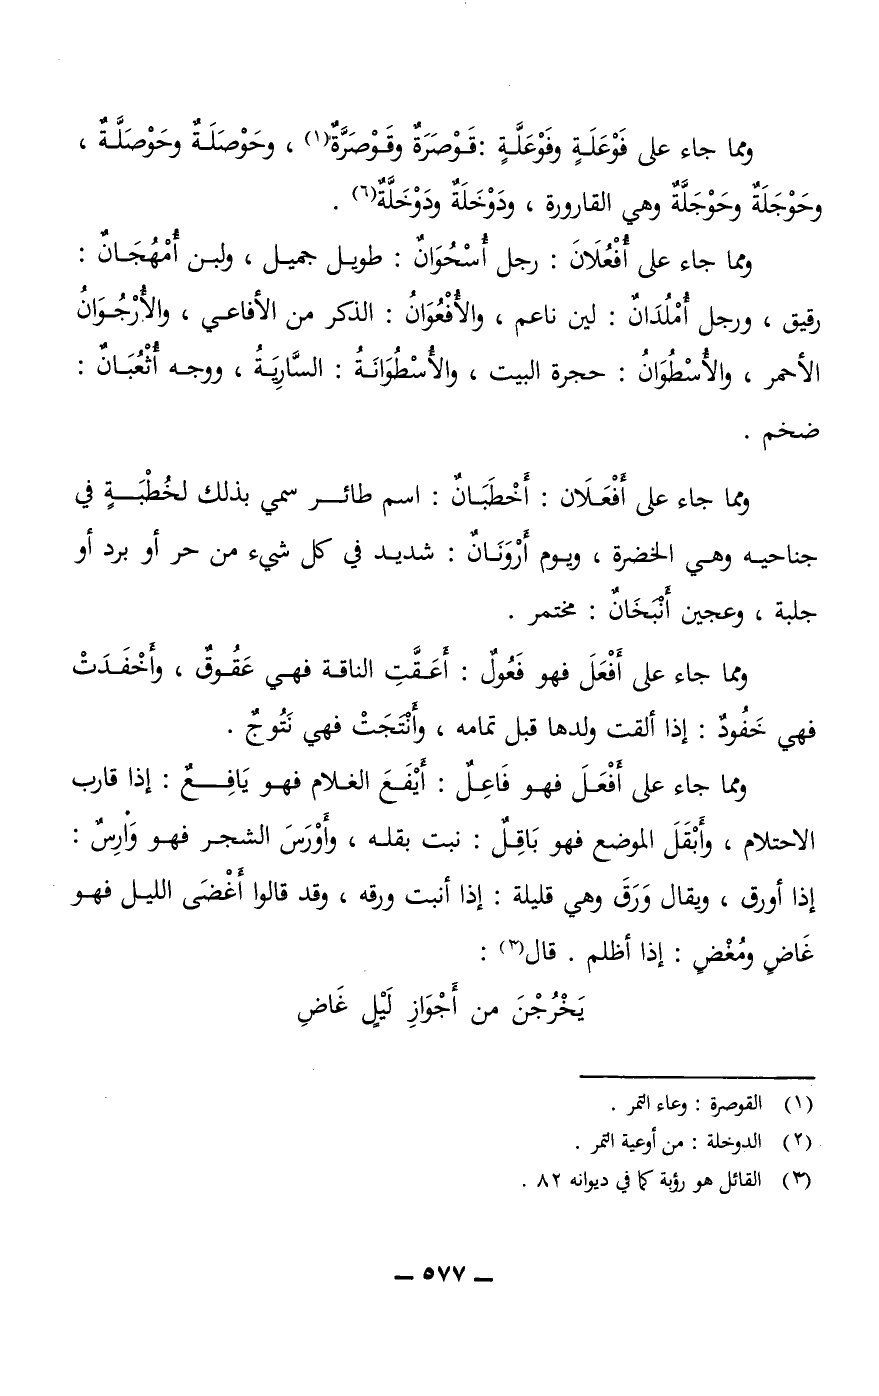 ومما جاء على فَوْعَلَةٍ وفَوْعَلَّةٍ :قَوْصَرَةٌ وقَوْصَرَّةٌ(١) ، وحَوْصَلَةٌ وحَوْصَلَّةٌ ،
وحَوْجَلَةٌ وحَوْجَلَّةٌ وهي القارورة ، ودَوْخَلَةٌ ودَوْخَلَّةٌ(٦) .
ومما جاء على أُفْعُلَانَ : رجل أُسْحُوَانٌ : طويل جميل ، ولبن أُمْهُجَانٌ :
رقيق ، ورجل أُمْلُدَانٌ : لين ناعم ، والأُفْعُوَانُ : الذكر من الأفاعي ، والأُرْجُوَانُ
الأحمر ، والأُسْطُوَانُ : حجرة البيت ، والأُسْطُوَانَةُ : السَّارِيَةُ ، ووجه أُثْعُبَانٌ :
ضخم .
ومما جاء على أَفْعَلَان : أَخْطَبَانٌ : اسم طائر سمي بذلك لخُطْبَةٍ في
جناحيه وهي الخضرة ، ويوم أَرْوَنَانٌ : شديد في كل شيء من حر أو برد أو
جلبة ، وعجين أَنْبَخَانٌ : مختمر .
ومما جاء على أَفْعَلَ فهو فَعُولٌ : أَعَقَّتِ الناقة فهي عَقُوقٌ ، وأَخْفَدَتْ
فهي خَفُودٌ : إذا ألقت ولدها قبل تمامه ، وأَنْتَجَتْ فهي نَتُوجٌ .
ومما جاء على أَفْعَلَ فهو فَاعِلٌ : أَيْفَعَ الغلام فهو يَافِعٌ : إذا قارب
الاحتلام ، وأَبْقَلَ الموضع فهو بَاقِلٌ : نبت بقله ، وأَوْرَسَ الشجر فهو وَارِسٌ :
إذا أورق ، ويقال وَرَقَ وهي قليلة : إذا أنبت ورقه ، وقد قالوا أَغْضَى الليل فهو
غَاضٍ ومُغْضٍ : إذا أظلم . قال(٣) :
يَخْرُجْنَ من أَجْوَازِ لَيْلٍ غَاضِ
(١) القوصرة : وعاء التمر .
(٢) الدوخلة : من أوعية التمر .
(٣) القائل هو رؤبة كما في ديوانه ٨٢ .
— ٥٧٧ —